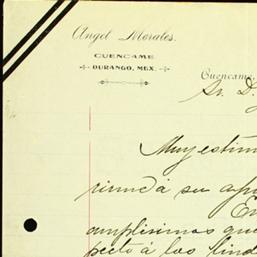 Angel Morales.
CUENCAME
DURANGO, MEX.
Cuencame,
Sr. D.
Muy estim
rirme á su apr
En
amplísimas que
pecto á los lind